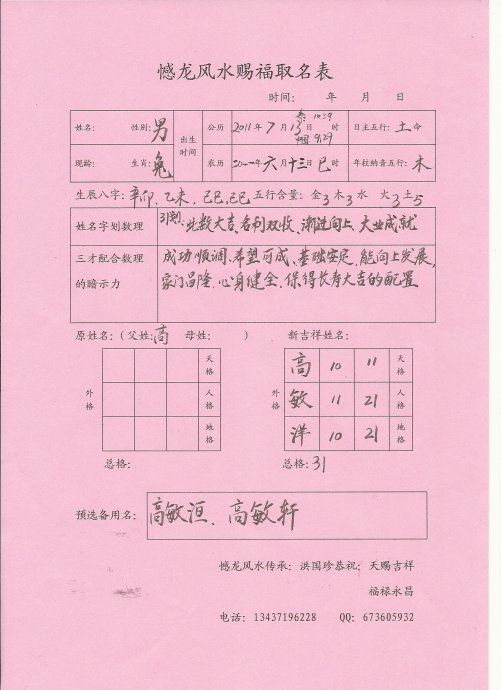 憾龙风水赐福取名表
时间： 年 月 日
姓名： 性别：男 出生时间 公历 2011年7月13日 时 10:39 9:29 日主五行：土命
现龄： 生肖：兔 农历 二0一一年六月十三日巳时 年柱纳音五行：木
生辰八字：辛卯、乙未、己巳、己巳 五行含量：金3木3水 火3土5
姓名字划数理 31划：此数大吉、名利双收、渐进向上、大业成就
三才配合数理的暗示力 成功顺调、希望可成、基础安定、能向上发展，
家门昌隆、心身健全、保得长寿大吉的配置
原姓名：（父姓：高 母姓： ） 新吉祥姓名：
天格 高 10 11 天格
外格 人格 外格 敏 11 21 人格
地格 洋 10 21 地格
总格： 总格：31
预选备用名： 高敏洹、高敏轩
憾龙风水传承：洪国珍恭祝：天赐吉祥
福禄永昌
电话：13437196228 QQ：673605932